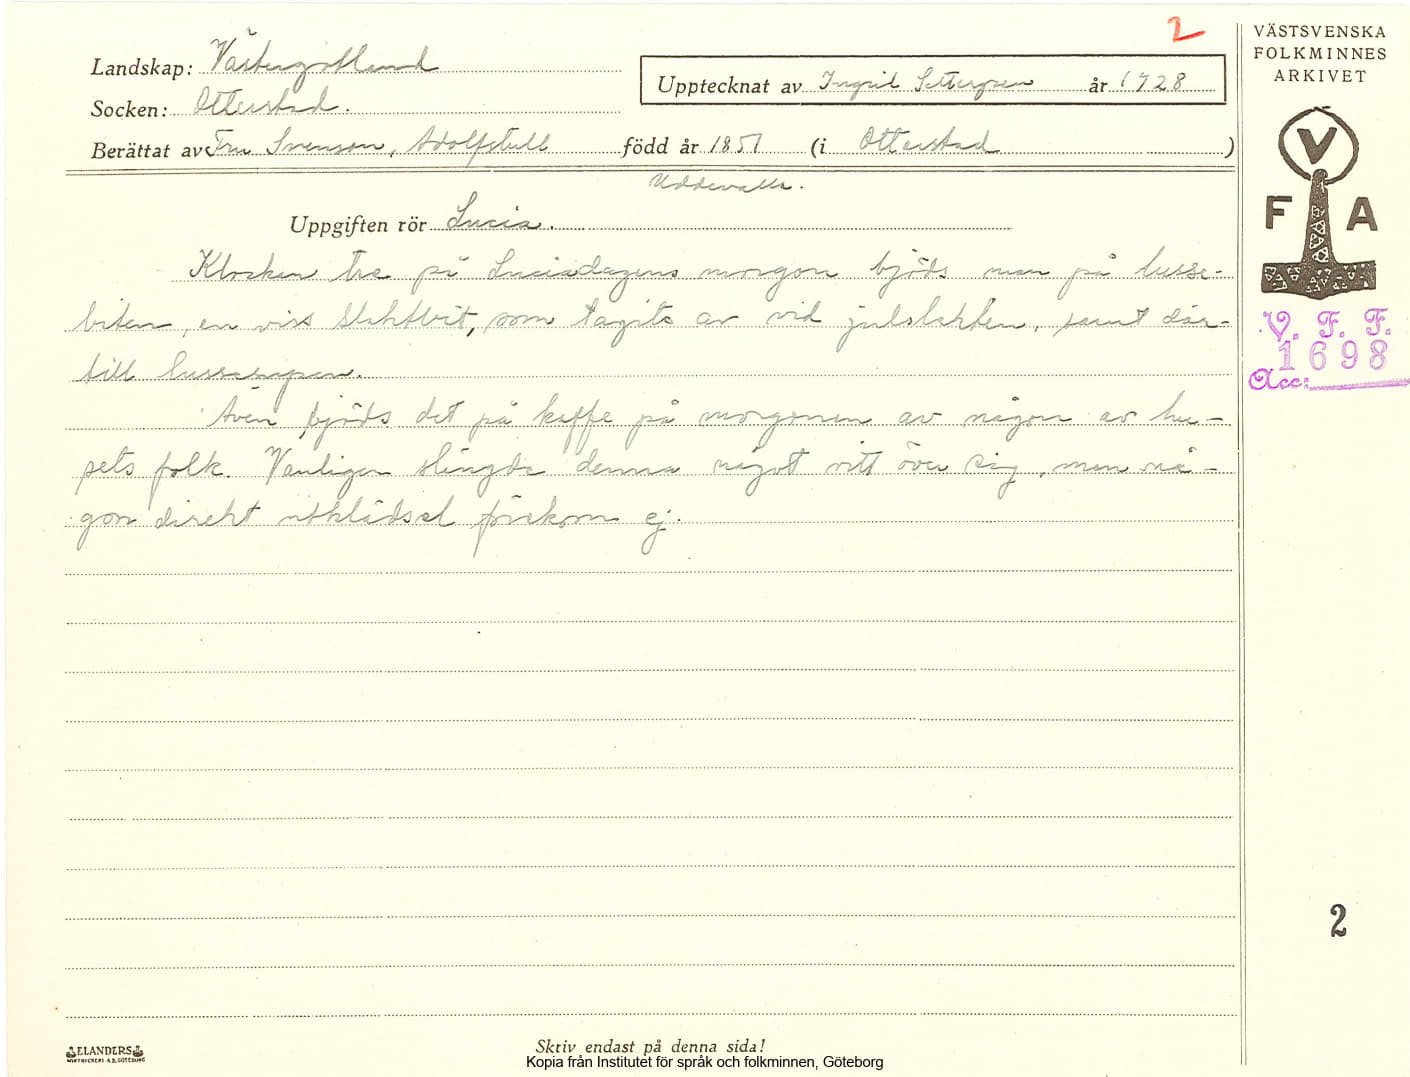 2
VÄSTSVENSKA
FOLKMINNES
ARKIVET
Landskap: Västergötland
Upptecknat av Ingrid Settergren år 1928
Socken: Otterstad.
Berättat av Fru Svenson, Adolfstull född år 1851 (i Otterstad )
Uddevalla.
V
F A
Uppgiften rör Lucia.
Klockan tre på Luciadagens morgon bjöds man på lusse-
biten, en viss slaktbit, som tagits av vid julslakten, samt där-
till lussesupen.
Även bjöds det på kaffe på morgonen av någon av hu-
sets folk. Vanligen slängde denna något vitt över sig, men nå-
gon direkt utklädsel förekom ej.
V. F. F.
1698
Acc:
2
ELANDERS
Skriv endast på denna sida!
Kopia från Institutet för språk och folkminnen, Göteborg